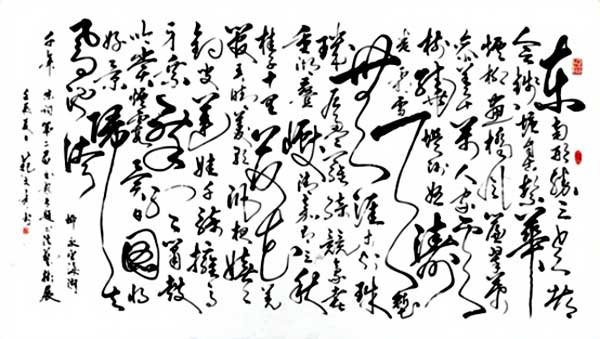 东南形胜三吴都
会钱塘自古繁华
烟柳画桥风帘翠幕
参差十万人家云
树绕堤沙怒涛
卷霜雪天堑
无涯市列珠
玑户盈罗绮竞豪奢
重湖叠巘清嘉有三秋
桂子十里荷花羌
管弄晴菱歌泛夜嬉嬉
钓叟莲娃千骑拥高
牙乘醉听箫鼓
吟赏烟霞异日图将
好景归去
凤池夸
柳永望海潮
千年宋词第二届书法艺术展